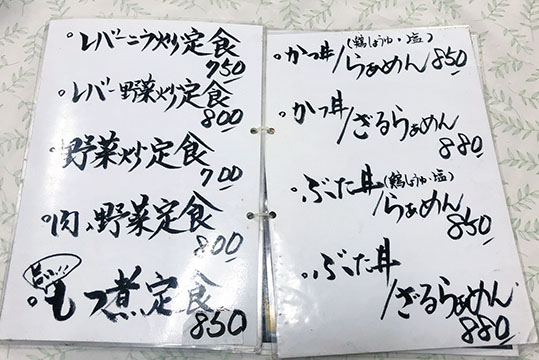 。レバーニラ炒定食
750
。レバー野菜炒定食
800
。野菜炒定食
700
。肉、野菜定食
800
。もつ煮定食
850
。かつ丼/らぁめん850
(鶏しょうゆ・塩)
。かつ丼
/ざるらぁめん
880
。ぶた丼(鶏しょうゆ・塩)
/らぁめん
850
。ぶた丼
/ざるらぁめん
880